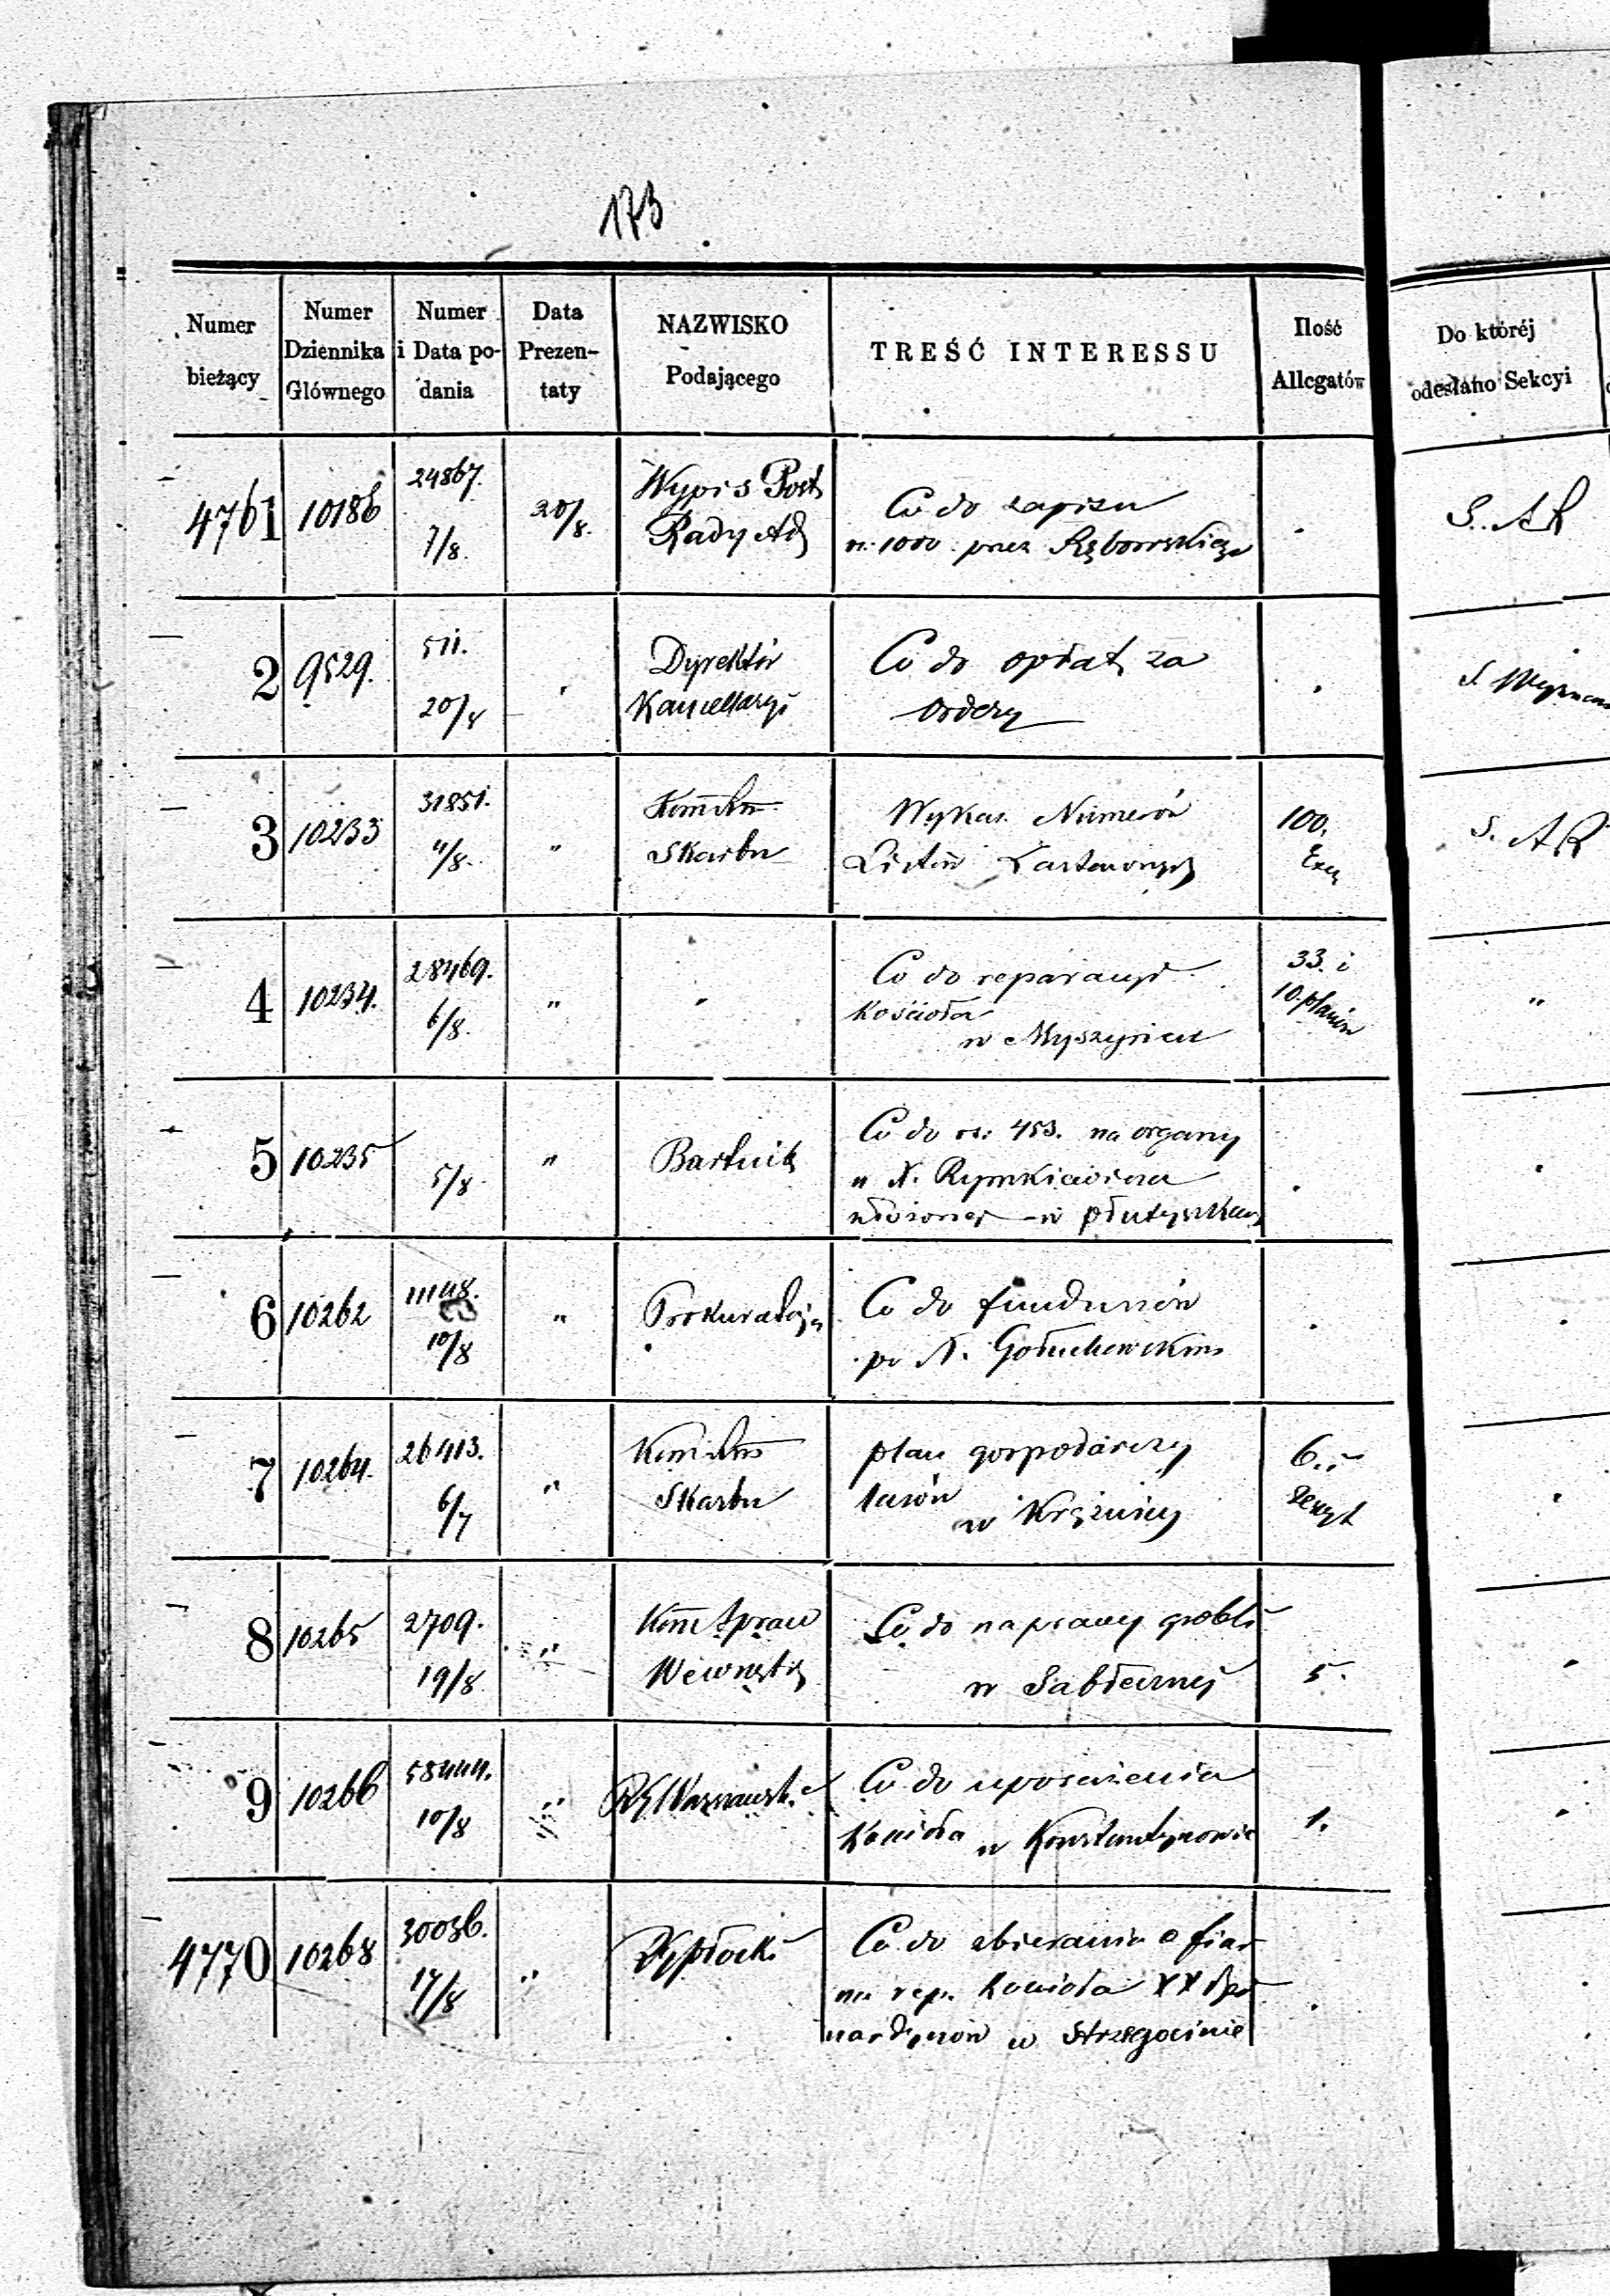 173
Numer bieżący
Numer Dziennika Głównego
Numer i Data podania
Data Prezentaty
NAZWISKO Podającego
TREŚĆ INTERESSU
Ilość Allegatów
Do któréj odesłano Sekcyi
4761 10186 24867. 7/8. 20/8. Wypis Post Rady Ad
Co do zapisu
rs. 1000 przez
S. A R
2 9529. 511. 20/8 Dyrektór Kancellaryi
Co do opłat za
ordery
3 10233 31851. 11/8. " Skarbu
Wykaz Numerów
Listów Zastawnych
100. Exez
S. A R
4 10234. 28469. 6/8. " "
Co do reparacyi
Kościoła
w Myszyńcu
33. i 10. planów
"
5 10235 5/8. " Bartnik
Co do rs: 453. na organy
u X. Rymkiewicza
złożonej w
6 10262 11148. 10/8 " Prokuratorya
Co do funduszów
po X. Gołuchowskim
7 10264. 26413. 6/7 " Skarbu
plan gospodarczy
lasów
w Krężnicy
6. i zeszyt
8 10265 2709. 19/8 " Komm Spraw Wewnętrz
Co do naprawy grobli
w
5.
9 10266 58444. 10/8 " RG Warszawski
Co do uposażenia
Kościoła w Konstantynowie
1.
4770 10268 30036. 17/8 " RG Płocki
Co do zbierania ofiar
na rep. Kościoła XX Ber
nardynów w Strzegocinie